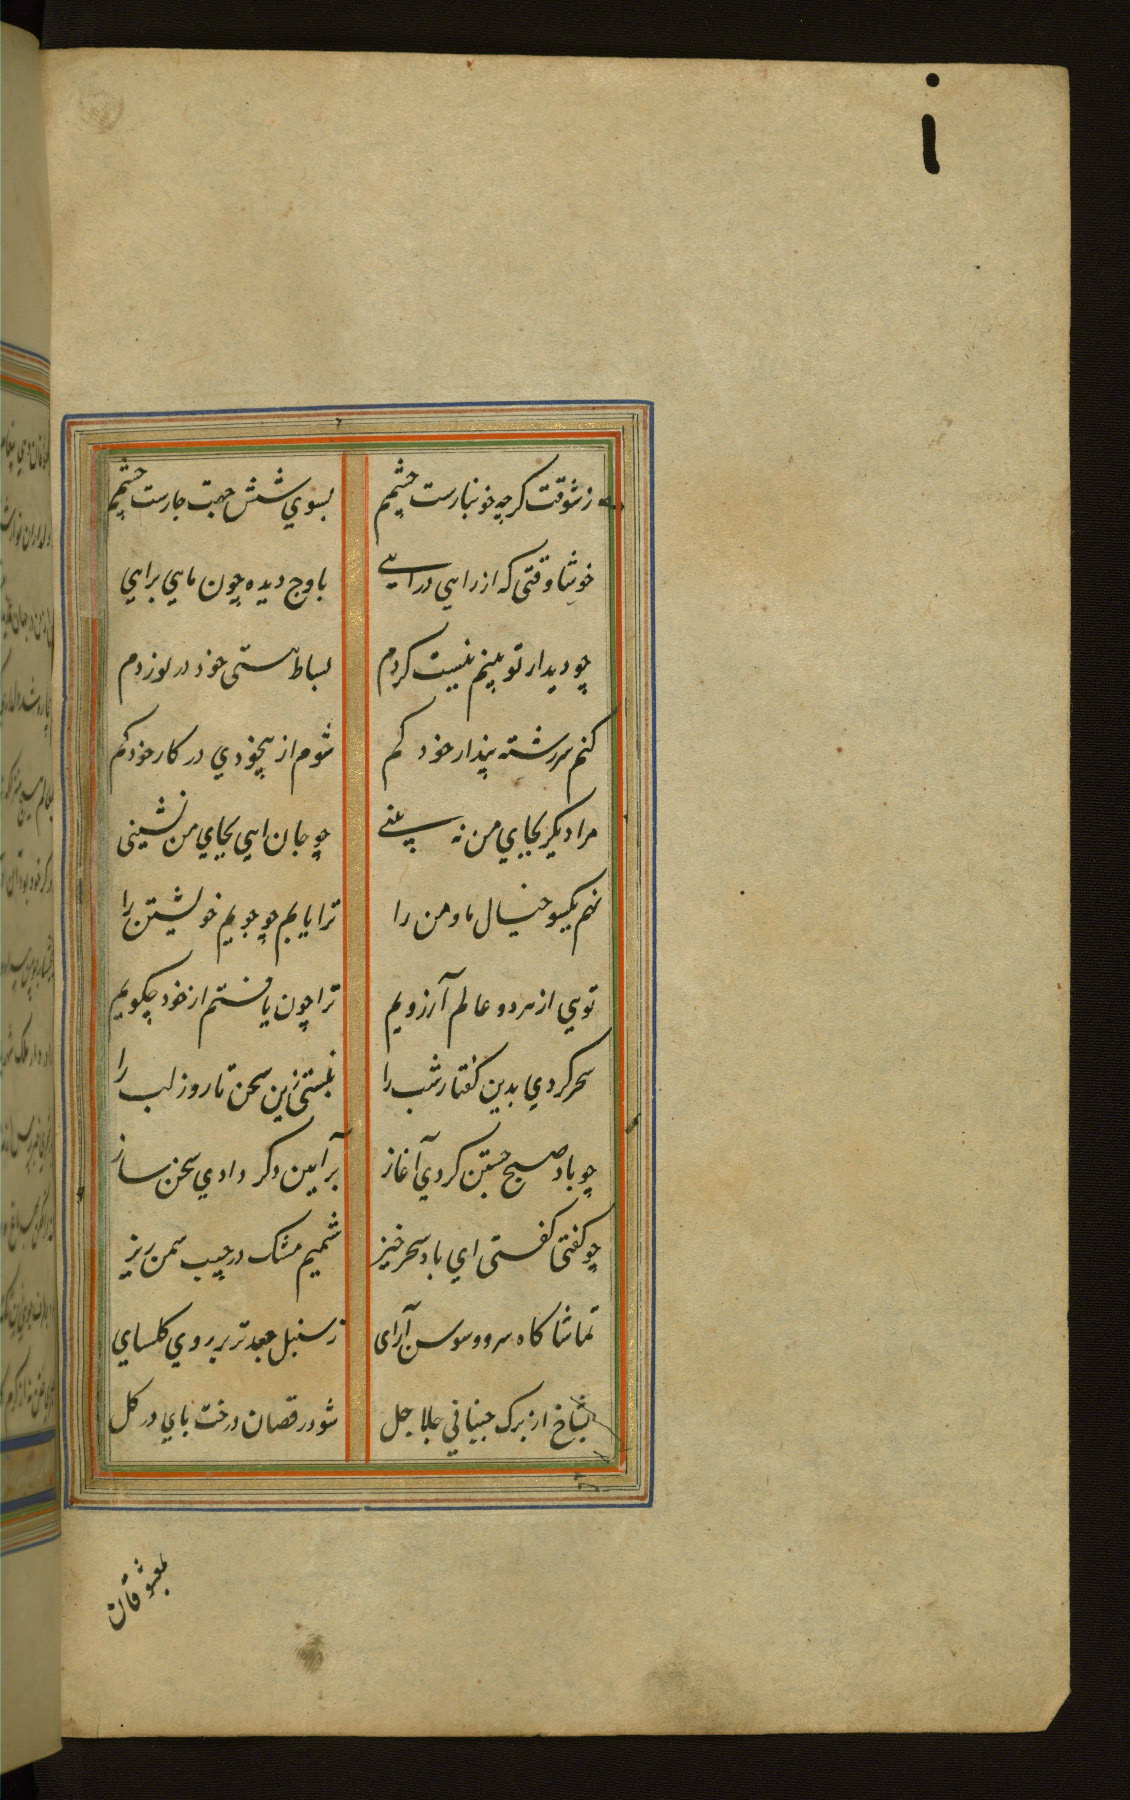 ز شوقت کرچه خونبارست چشمم بسوي شش جهت چارست چشمم
خوشا وقتی که از راهي درایی باوج دیده چون ماهي براهي
چو دیدار تو بینم نیست کردم بساط هستی خود در نوردم
کنم سررشته پندار خود کم شوم از بیخودي در کار خود کم
مرا دیکر بجایي من نه بینے چو جان ایي بجاي من نشینی
نهم یکسو خیال ما و من را ترا یابم چو جویم خویشتن را
تویي از هر دو عالم آرزویم ترا چون یافتم از خود چکویم
سحر کردي بدین کفتار شب را نبستی زین سخن تا روز لب را
چو باد صبح جستن کردي آغاز بر آیین دکر دادي سخن ساز
چو کفتی کفتی اي باد سحر خیز شمیم مشک در جیب سمن ریز
تماشا کاه سرو و سوسن آرای ز سنبل جعد تر بر روي کلساي
بشاخ از برک جنباني جلاجل شود رقصان درخت پاي در کل
بمعشوقان